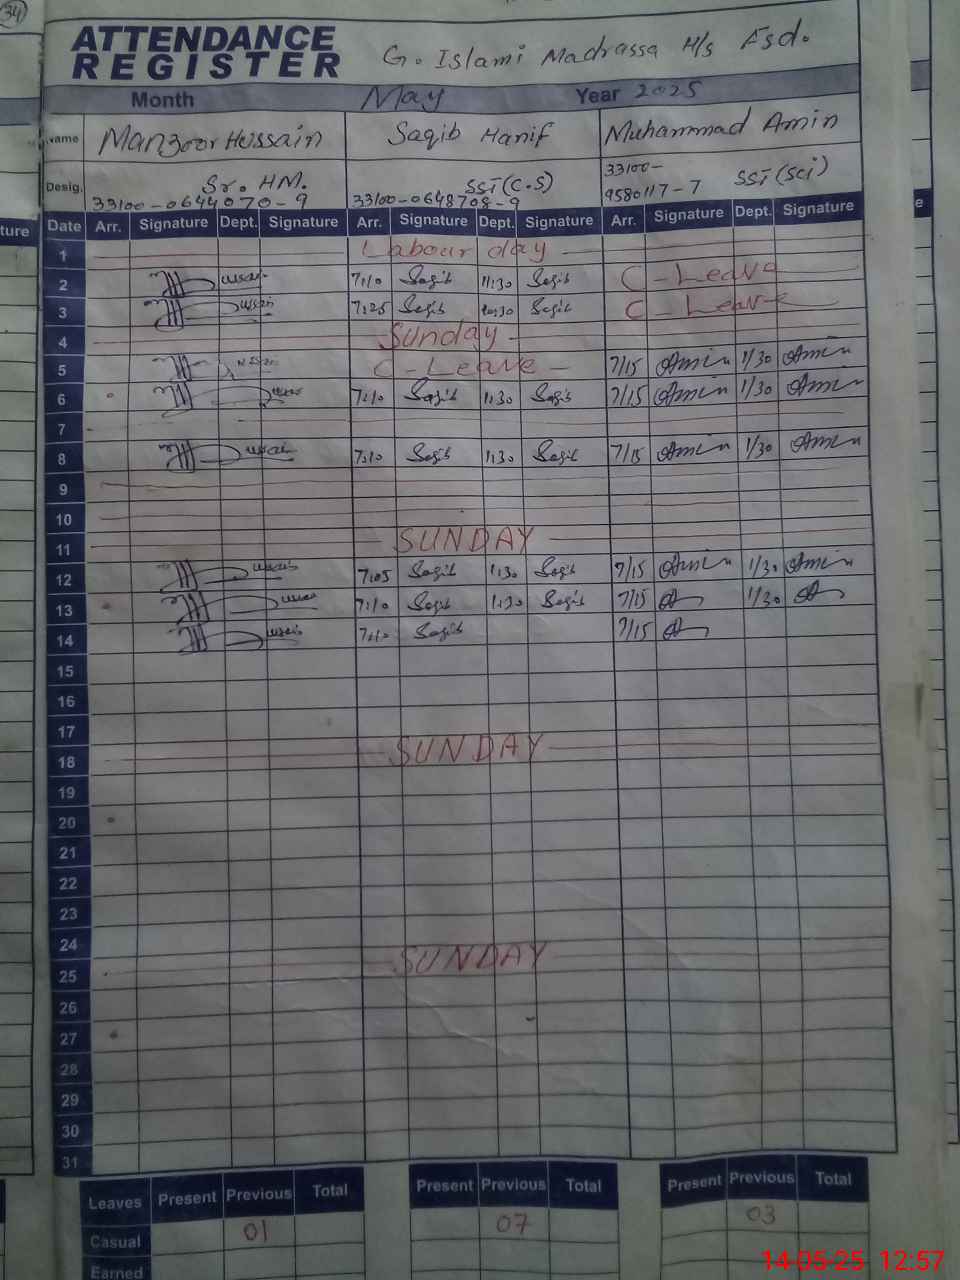 34
ATTENDANCE
REGISTER
G. Islami Madrassa H/s Fsd.
Month May Year 2025
Name Manzoor Hussain Saqib Hanif Muhammad Amin
Desig. Sr. HM. SST (C.S) 33100- SST (Sci)
33100-0644070-9 33100-0648708-9 9580117-7
Date Arr. Signature Dept. Signature Arr. Signature Dept. Signature Arr. Signature Dept. Signature
1 Labour day
2 7:10 Saqib 11:30 Saqib C-Leave
3 7:25 Saqib 10:30 Saqib C-Leave
4 Sunday
5 C-Leave 7/15 Amin 1/30 Amin
6 7:10 Saqib 1:30 Saqib 7/15 Amin 1/30 Amin
7
8 7:10 Saqib 1:30 Saqib 7/15 Amin 1/30 Amin
9
10
11 SUNDAY
12 7:05 Saqib 1:30 Saqib 7/15 Amin 1/30 Amin
13 7:10 Saqib 1:30 Saqib 7/15 1/30
14 7:10 Saqib 7/15
15
16
17
18 SUNDAY
19
20
21
22
23
24
25 SUNDAY
26
27
28
29
30
31
Leaves Present Previous Total Present Previous Total Present Previous Total
Casual 01 07 03
Earned
14-05-25 12:57